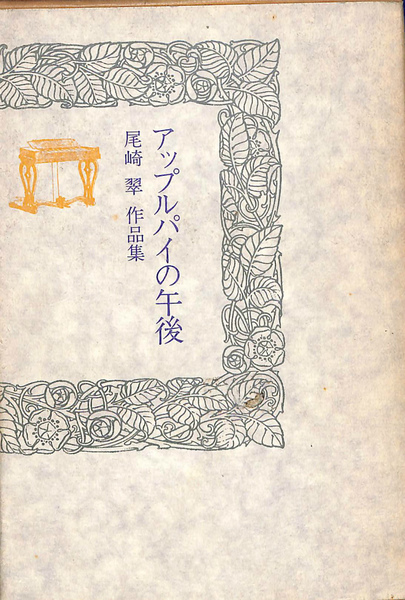 アップルパイの午後
尾崎 翠 作品集